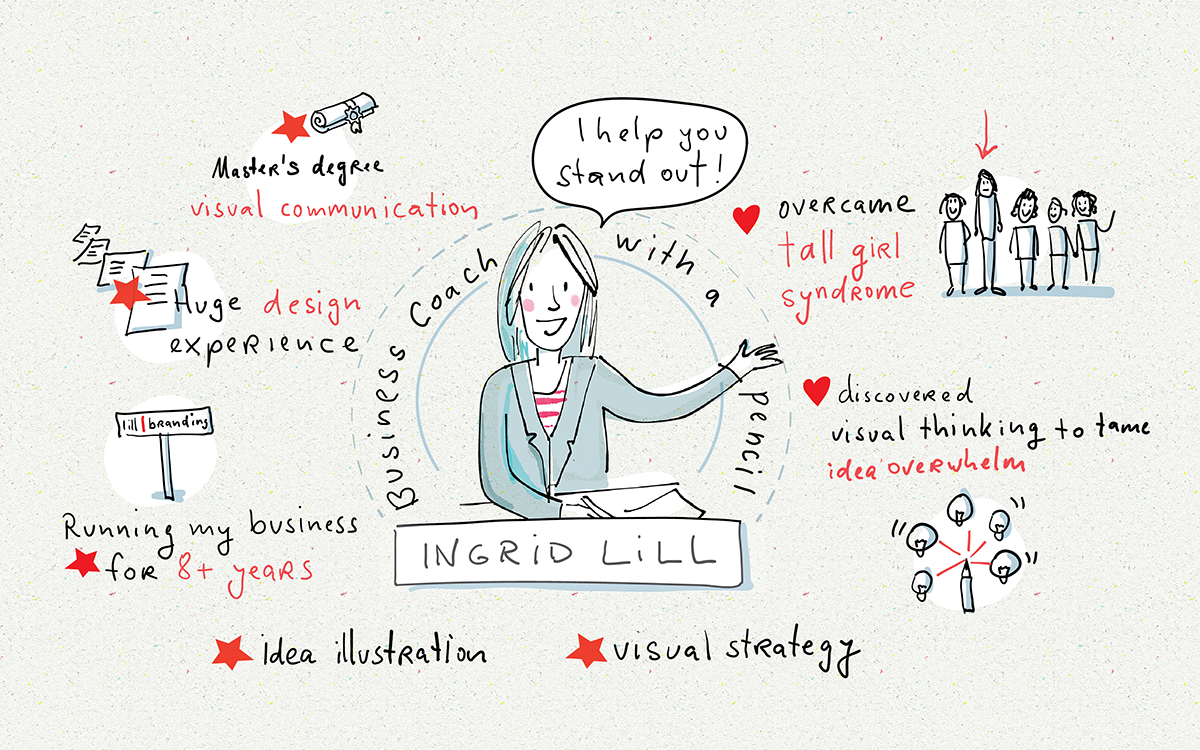 Master's degree
visual communication
Huge design
experience
lill|branding
Running my business
for 8+ years
I help you
stand out!
Business Coach with a pencil
INGRID LILL
overcame
tall girl
syndrome
discovered
visual thinking to tame
idea overwhelm
idea illustration
visual strategy